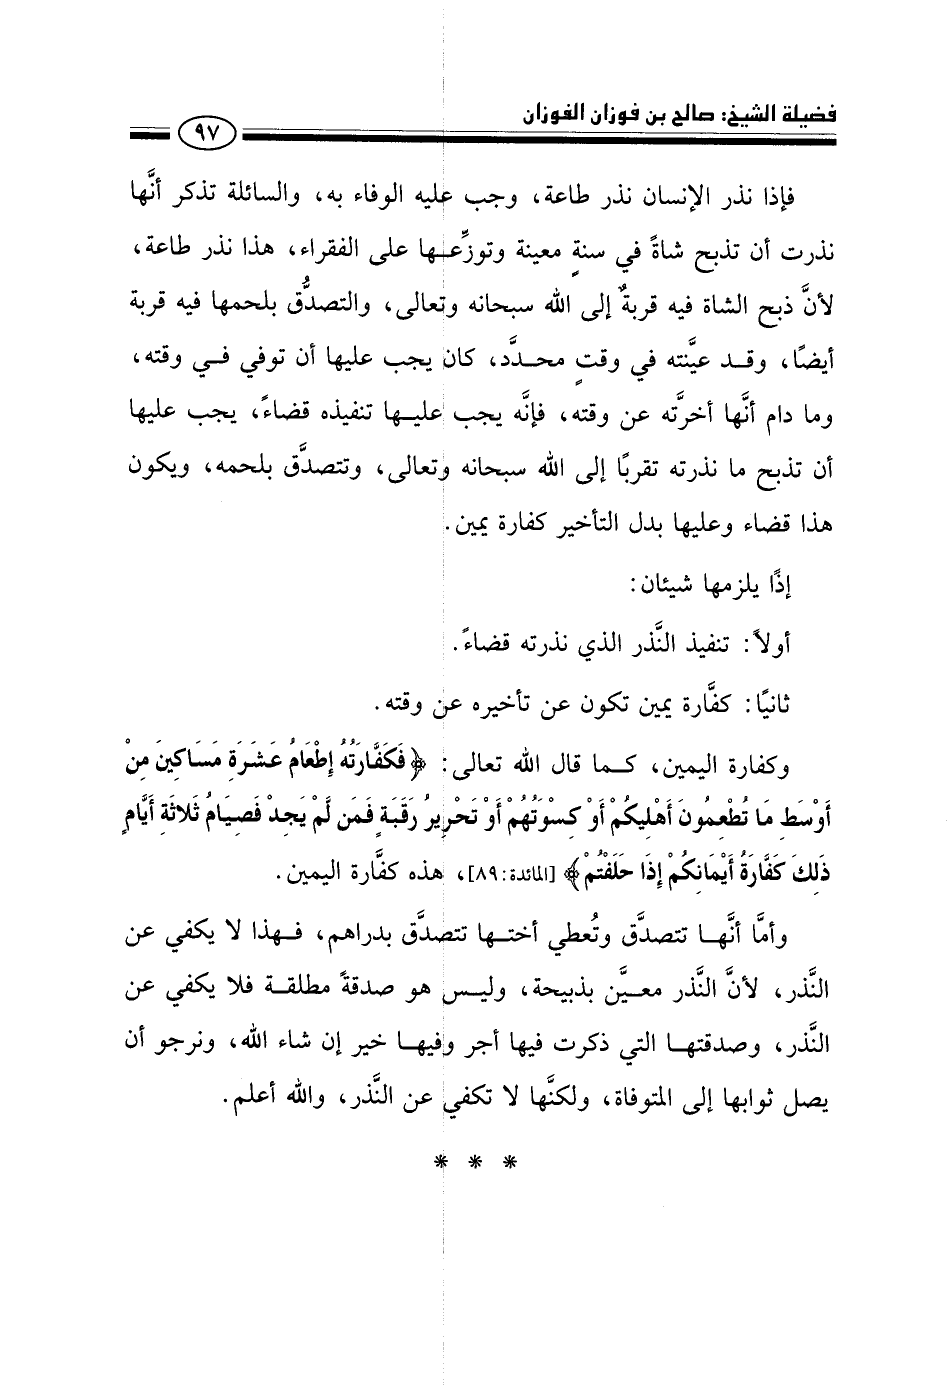 فضيلة الشيخ: صالح بن فوزان الفوزان
٩٧
فإذا نذر الإنسان نذر طاعة، وجب عليه الوفاء به، والسائلة تذكر أنَّها
نذرت أن تذبح شاةً في سنةٍ معينة وتوزِّعـها على الفقراء، هذا نذر طاعة،
لأنَّ ذبح الشاة فيه قربةٌ إلى الله سبحانه وتعالى، والتصدُّق بلحمها فيه قربة
أيضًا، وقـد عيَّنته في وقتٍ محـدَّد، كان يجب عليها أن توفي فـي وقته،
وما دام أنَّها أخرَّته عن وقته، فإنَّه يجب عليـها تنفيذه قضاءً، يجب عليها
أن تذبح ما نذرته تقربًا إلى الله سبحانه وتعالى، وتتصدَّق بلحمه، ويكون
هذا قضاء وعليها بدل التأخير كفارة يمين.
إذًا يلزمها شيئان:
أولاً: تنفيذ النَّذر الذي نذرته قضاءً.
ثانيًا: كفَّارة يمين تكون عن تأخيره عن وقته.
وكفارة اليمين، كـما قال الله تعالى: ﴿فَكَفَّارَتُهُ إِطْعَامُ عَشَرَةِ مَسَاكِينَ مِنْ
أَوْسَطِ مَا تُطْعِمُونَ أَهْلِيكُمْ أَوْ كِسْوَتُهُمْ أَوْ تَحْرِيرُ رَقَبَةٍ فَمَن لَّمْ يَجِدْ فَصِيَامُ ثَلاثَةِ أَيَّامٍ
ذَلِكَ كَفَّارَةُ أَيْمَانِكُمْ إِذَا حَلَفْتُمْ﴾ [المائدة:٨٩]، هذه كفَّارة اليمين.
وأمَّا أنَّهـا تتصدَّق وتُعطي أختـها تتصدَّق بدراهم، فـهذا لا يكفي عن
النَّذر، لأنَّ النَّذر معـيَّن بذبيحة، وليـس هو صدقةً مطلقـة فلا يكفي عن
النَّذر، وصدقتهـا التي ذكرت فيها أجر وفيهـا خير إن شاء الله، ونرجو أن
يصل ثوابها إلى المتوفاة، ولكنَّها لا تكفي عن النَّذر، والله أعلم.
* * *